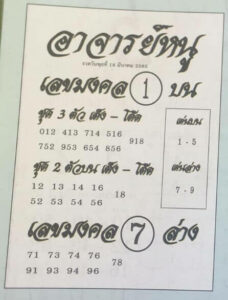 อาจารย์หนู
งวดวันพุธที่ 16 มีนาคม 2565
เลขมงคล 1 บน
ชุด 3 ตัว เต็ง – โต๊ด
012 413 714 516
918
752 953 654 856
ชุด 2 ตัวบน เต็ง – โต๊ด
12 13 14 16
18
52 53 54 56
เด่นบน
1 - 5
เด่นล่าง
7 - 9
เลขมงคล 7 ล่าง
71 73 74 76
78
91 93 94 96